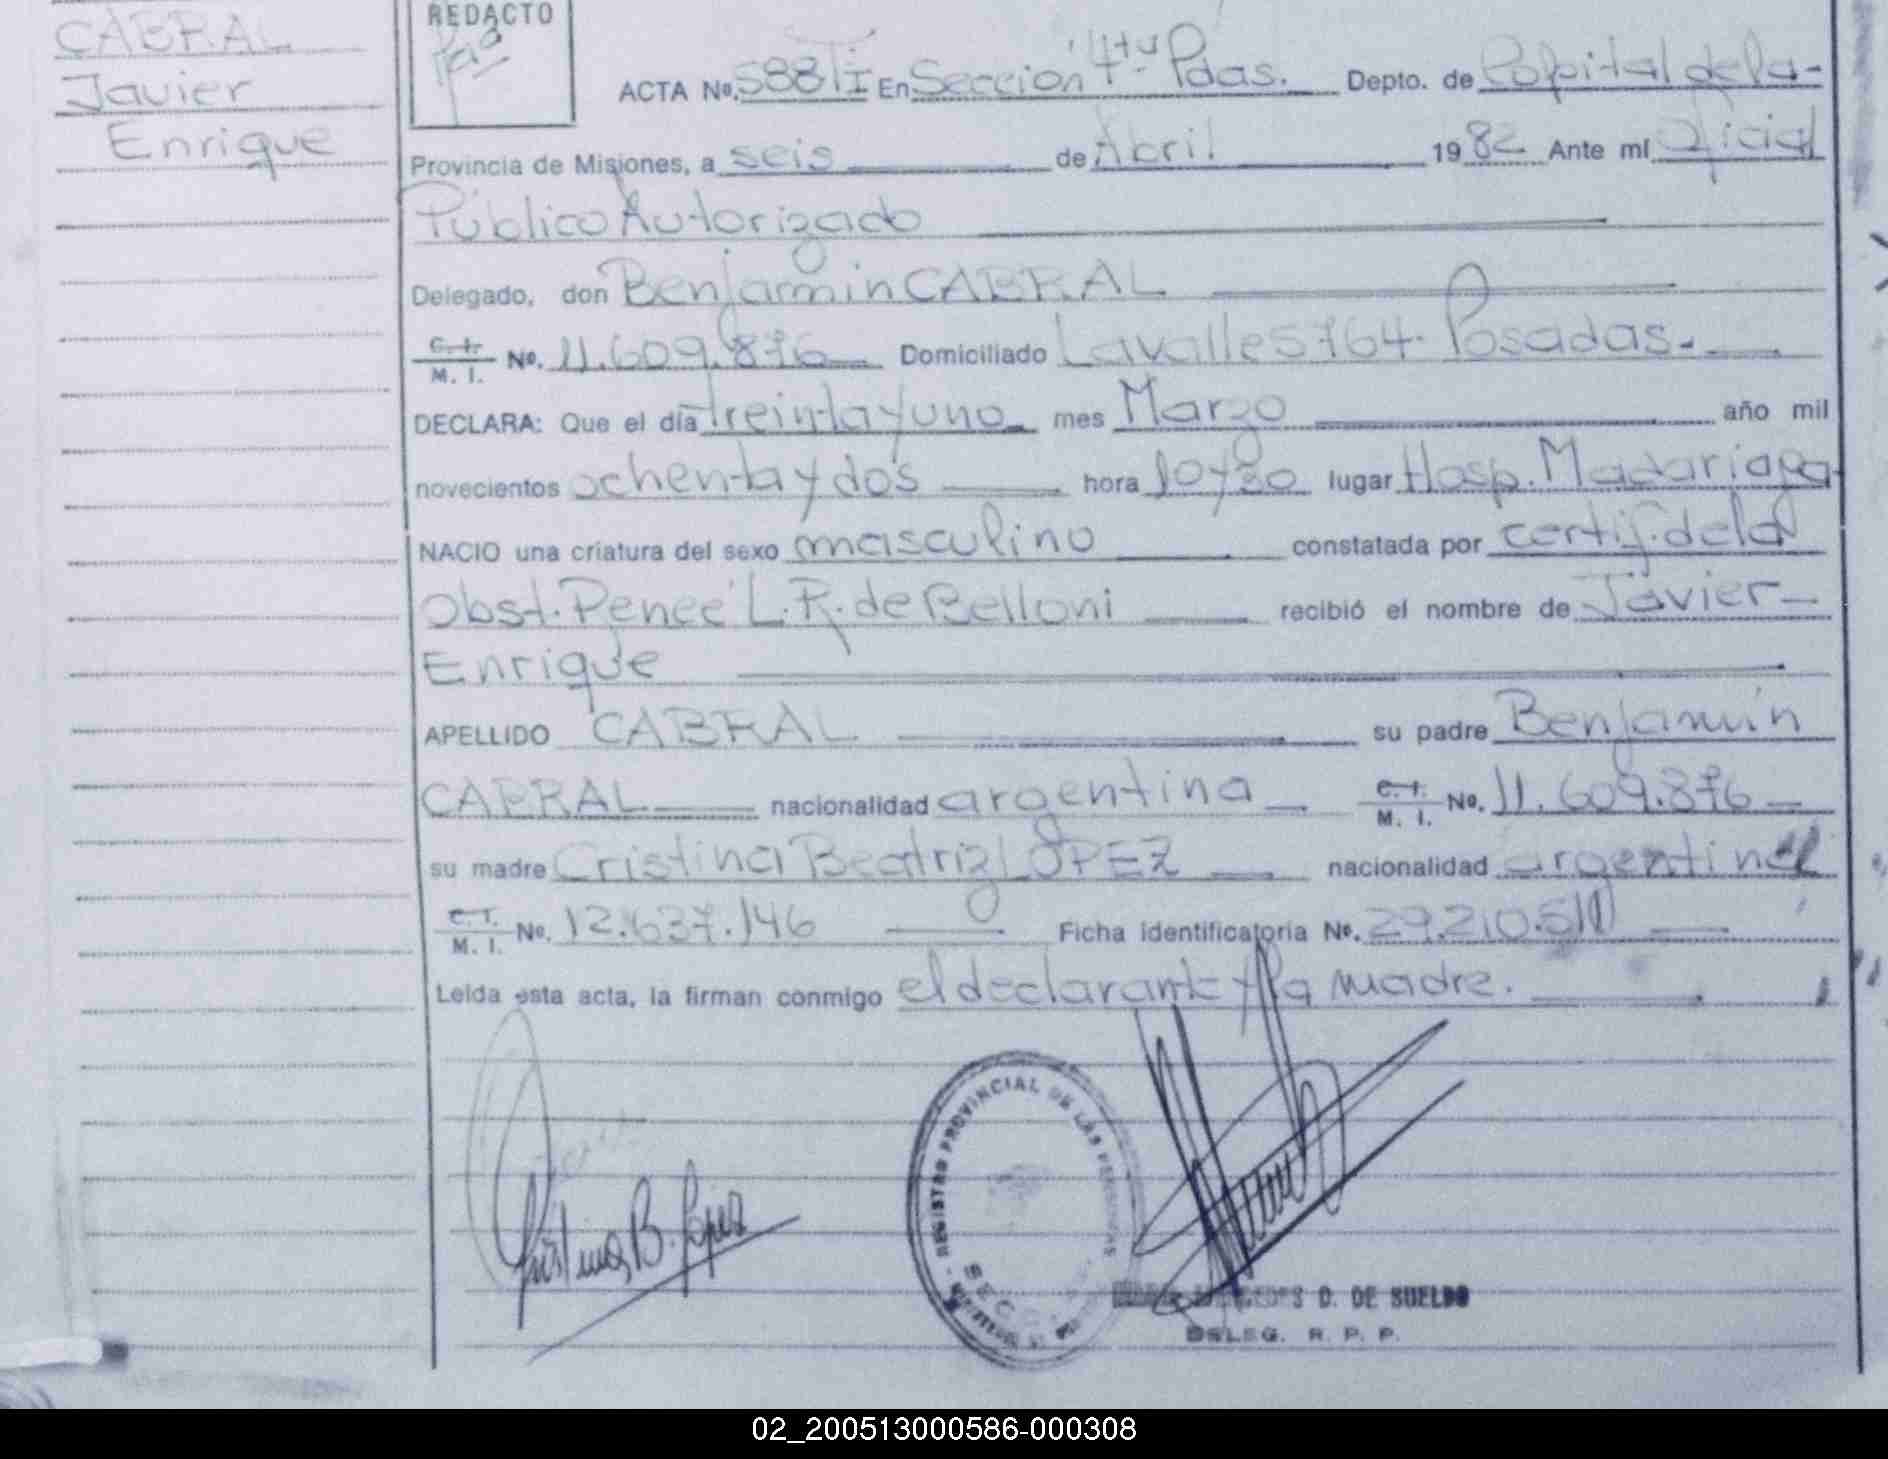 CABRAL
Javier
Enrique
REDACTO
ACTA No. 588 TI En Sección 4ta Pdas. Depto. de Capital de la-
Provincia de Misiones, a seis de Abril 1982 Ante mí Oficial
Público Autorizado
Delegado, don Benjamin CABRAL
C. I. M. I. No. 11.609.876 Domiciliado Lavalle 5764. Posadas.-
DECLARA: Que el día treinta y uno mes Marzo año mil
novecientos ochenta y dos hora 10 y 30 lugar Hosp. Madariaga-
NACIO una criatura del sexo masculino constatada por certif. de la
Obst. Reneé L. R. de Belloni recibió el nombre de Javier-
Enrique
APELLIDO CABRAL su padre Benjamín
CABRAL nacionalidad argentina C. I. M. I. No. 11.609.876
su madre Cristina Beatriz LOPEZ nacionalidad argentina
C. I. M. I. No. 12.637.146 Ficha identificatoria No. 29.210.511
Leída esta acta, la firman conmigo el declarante y la madre.
Cristina B. López
REGISTRO PROVINCIAL DE LAS PERSONAS
D. DE SUELDO
DELEG. R. P. P.
02_200513000586-000308